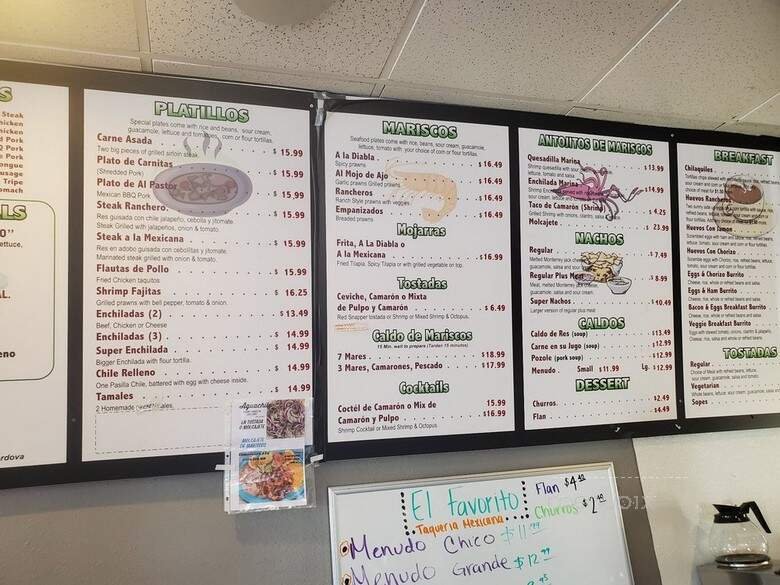 S
Steak
Chicken
Pork
Pork
ongue
usage
Tripe
tomach
LS
O"
ettuce,
AL.
eno
ordova
PLATILLOS
Special plates come with rice and beans, sour cream,
guacamole, lettuce and tomatoes, corn or flour tortillas.
Carne Asada $ 15.99
Two big pieces of grilled sirloin steak.
Plato de Carnitas $ 15.99
(Shredded Pork)
Plato de Al Pastor $ 15.99
Mexican BBQ Pork
Steak Ranchero $ 15.99
Res guisada con chile jalapeño, cebolla y jitomate.
Steak Grilled with jalapeños, onion & tomato.
Steak a la Mexicana $ 15.99
Res en adobo guisada con cebollitas y jitomate.
Marinated steak grilled with onion & tomato.
Flautas de Pollo $ 15.99
Fried Chicken taquitos
Shrimp Fajitas $ 16.25
Grilled prawns with bell pepper, tomato & onion.
Enchiladas (2) $ 13.49
Beef, Chicken or Cheese
Enchiladas (3) $ 14.99
Super Enchilada $ 14.99
Bigger Enchilada with flour tortilla.
Chile Relleno $ 14.99
One Pasilla Chile, battered with egg with cheese inside.
Tamales $ 14.99
2 Homemade
Aguachile
LA TOSTADA
O MOLCAJETE
MOLCAJETE
DE MARISCOS
MARISCOS
Seafood plates come with rice, beans, sour cream, guacamole,
lettuce, tomato with your choice of corn or flour tortillas.
A la Diabla $ 16.49
Spicy prawns
Al Mojo de Ajo $ 16.49
Garlic prawns Grilled prawns
Rancheros $ 16.49
Ranch Style prawns with veggies
Empanizados $ 16.49
Breaded prawns
Mojarras
Frita, A La Diabla o
A la Mexicana $ 16.99
Fried Tilapia, Spicy Tilapia or with grilled vegetable on top.
Tostadas
Ceviche, Camarón o Mixta
de Pulpo y Camarón $ 6.49
Red Snapper tostada or Shrimp or Mixed Shrimp & Octopus.
Caldo de Mariscos
15 Min. wait to prepare (Tarden 15 minutos)
7 Mares $18.99
3 Mares, Camarones, Pescado $17.99
Cocktails
Coctél de Camarón o Mix de $ 15.99
Camarón y Pulpo $16.99
Shrimp Cocktail or Mixed Shrimp & Octopus.
ANTOJITOS DE MARISCOS
Quesadilla Marina $13.99
Shrimp quesadilla with sour
lettuce, tomato and salsa
Enchilada Marina $14.99
Shrimp
guacamole, lettuce
Taco de Camarón (Shrimp) $ 4.25
Grilled Shrimp with onions, cilantro, salsa
Molcajete $ 23.99
NACHOS
Regular $ 7.49
Melted Monterey jack cheese,
guacamole, salsa and sour
Regular Plus Meat $ 8.99
Meat, melted Monterey jack cheese,
guacamole, salsa and sour cream.
Super Nachos $10.49
Larger version of regular plus meat
CALDOS
Caldo de Res (soup) $13.49
Carne en su Jugo (soup) $12.99
Pozole (pork soup) $12.99
Menudo Small $11.99 Lg. $12.99
DESSERT
Churros $2.49
Flan $4.49
BREAKFAST
Chilaquiles
Tortillas chips
sour cream and
choice of meat
Huevos Rancheros
Huevos Con Jamon
Scrambled eggs with ham
lettuce, tomato, sour cream,
Huevos Con Chorizo
Scramble eggs with Chorizo, rice, refried beans, lettuce,
Eggs & Chorizo Burrito
Cheese, rice, whole or refried beans and salsa.
Eggs & Ham Burrito
Cheese, rice, whole or refried beans and salsa.
Bacon & Eggs Breakfast Burrito
Cheese, rice, whole or refried beans and salsa.
Veggie Breakfast Burrito
TOSTADAS
Regular
Choice of Meat with refried beans, lettuce,
sour cream, guacamole, salsa and tomato.
Vegetarian
Whole beans, lettuce, sour cream, guacamole,
Sopes
El Favorito
Taqueria Mexicana
Flan $4.49
Churros $2.49
Menudo Chico $11.99
Menudo Grande $12.99